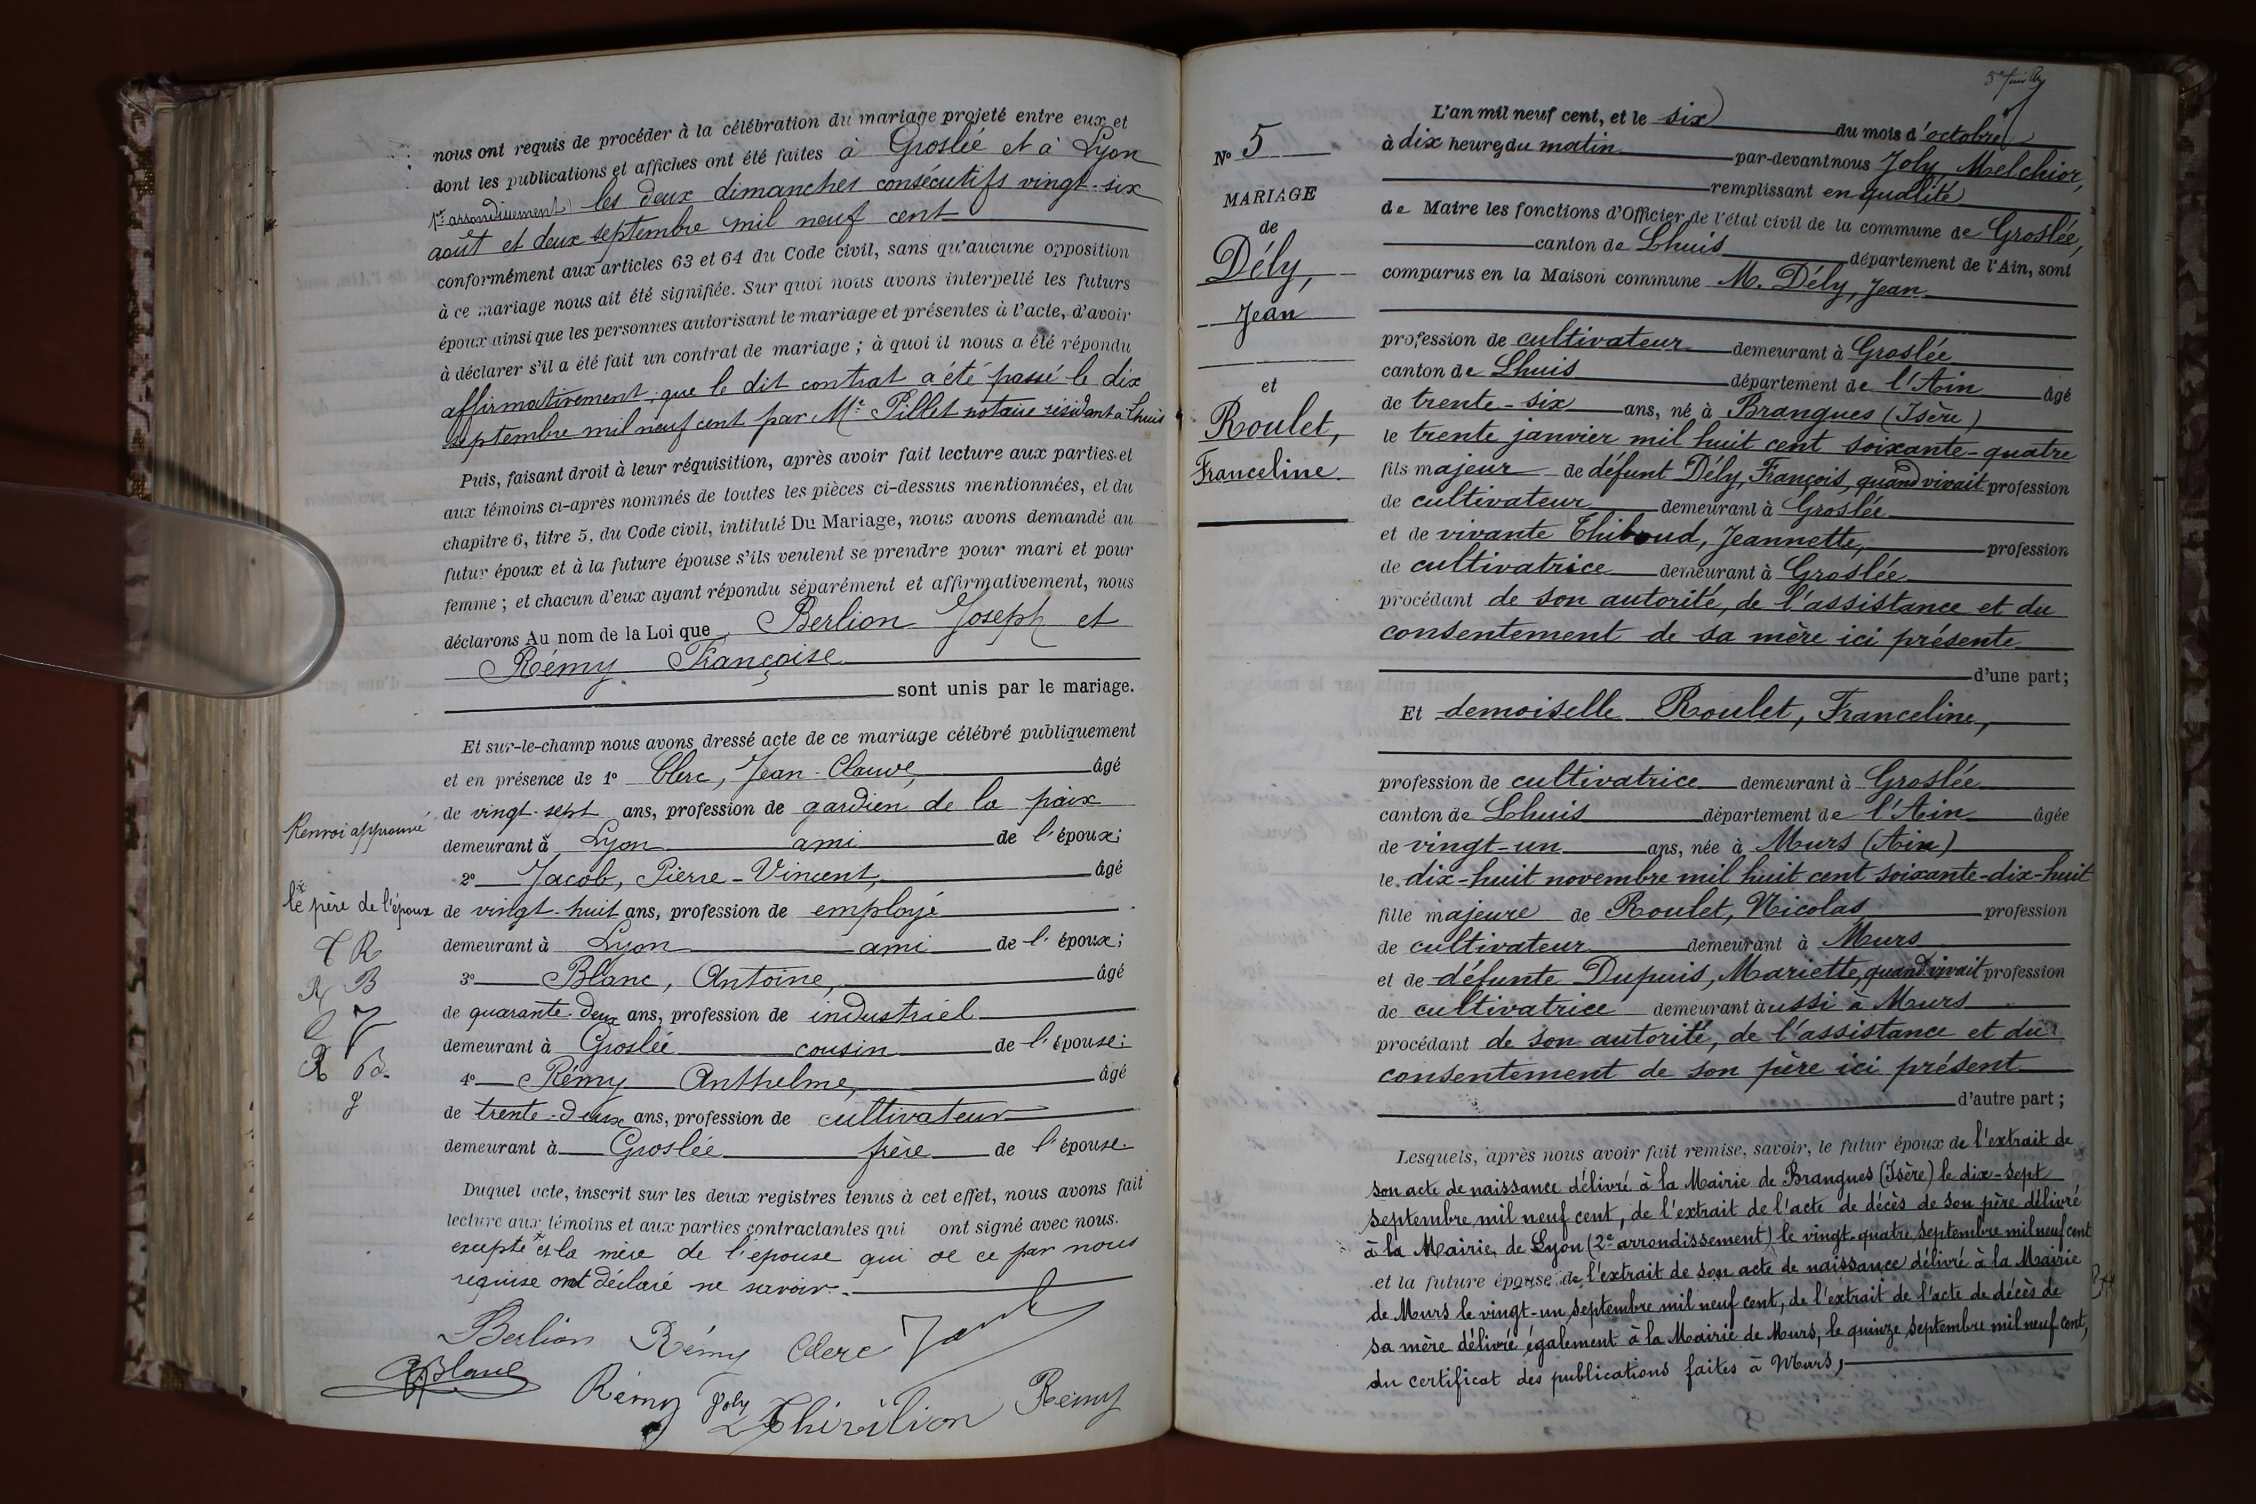 nous ont requis de procéder à la célébration du mariage projeté entre eux et
dont les publications et affiches ont été faites à Groslée et à Lyon
(1er arrondissement) les deux dimanches consécutifs vingt-six
août et deux septembre mil neuf cent
conformément aux articles 63 et 64 du Code civil, sans qu'aucune opposition
à ce mariage nous ait été signifiée. Sur quoi nous avons interpellé les futurs
époux ainsi que les personnes autorisant le mariage et présentes à l'acte, d'avoir
à déclarer s'il a été fait un contrat de mariage; à quoi il nous a été répondu
affirmativement; que le dit contrat a été passé le dix
septembre mil neuf cent par Me Pillet notaire résidant à Lhuis
Puis, faisant droit à leur réquisition, après avoir fait lecture aux parties et
aux témoins ci-après nommés de toutes les pièces ci-dessus mentionnées, et du
chapitre 6, titre 5, du Code civil, intitulé Du Mariage, nous avons demandé au
futur époux et à la future épouse s'ils veulent se prendre pour mari et pour
femme; et chacun d'eux ayant répondu séparément et affirmativement, nous
déclarons Au nom de la Loi que Berlion Joseph et
Rémy Françoise
sont unis par le mariage.
Et sur-le-champ nous avons dressé acte de ce mariage célébré publiquement
et en présence de 1° Clerc, Jean-Claude, âgé
de vingt-sept ans, profession de gardien de la paix
demeurant à Lyon ami de l'époux;
2° Jacob, Pierre-Vincent, âgé
de vingt-huit ans, profession de employé
demeurant à Lyon ami de l'époux;
3° Blanc, Antoine, âgé
de quarante-deux ans, profession de industriel
demeurant à Groslée cousin de l'épouse;
4° Rémy Anthelme, âgé
de trente-deux ans, profession de cultivateur
demeurant à Groslée frère de l'épouse.
Duquel acte, inscrit sur les deux registres tenus à cet effet, nous avons fait
lecture aux témoins et aux parties contractantes qui ont signé avec nous.
excepté x et la mère de l'épouse qui de ce par nous
requise ont déclaré ne savoir.
Berlion Rémy Clerc Jacob
Blanc
Rémy Joly Rémy
Renvoi approuvé
x le père de l'époux
C R
R B
C J
R B.
J
N° 5
MARIAGE
de
Dély,
Jean
et
Roulet,
Franceline.
L'an mil neuf cent, et le six du mois d'octobre
à dix heures du matin par-devant nous Joly, Melchior,
remplissant en qualité
de Maire les fonctions d'Officier de l'état civil de la commune de Groslée,
canton de Lhuis département de l'Ain, sont
comparus en la Maison commune M. Dély, Jean
profession de cultivateur demeurant à Groslée
canton de Lhuis département de l'Ain âgé
de trente-six ans, né à Brangues (Isère)
le trente janvier mil huit cent soixante-quatre
fils majeur de défunt Dély, François, quand vivait profession
de cultivateur demeurant à Groslée
et de vivante Thiboud, Jeannette, profession
de cultivatrice demeurant à Groslée
procédant de son autorité, de l'assistance et du
consentement de sa mère ici présente
d'une part;
Et demoiselle Roulet, Franceline,
profession de cultivatrice demeurant à Groslée
canton de Lhuis département de l'Ain âgée
de vingt-un ans, née à Murs (Ain)
le dix-huit novembre mil huit cent soixante-dix-huit
fille majeure de Roulet, Nicolas profession
de cultivateur demeurant à Murs
et de défunte Dupuis, Mariette, quand vivait profession
de cultivatrice demeurant aussi à Murs
procédant de son autorité, de l'assistance et du
consentement de son père ici présent
d'autre part;
Lesquels, après nous avoir fait remise, savoir, le futur époux de l'extrait de
son acte de naissance délivré à la Mairie de Brangues (Isère) le dix-sept
septembre mil neuf cent, de l'extrait de l'acte de décès de son père délivré
à la Mairie de Lyon (2e arrondissement) le vingt-quatre septembre mil neuf cent
et la future épouse de l'extrait de son acte de naissance délivré à la Mairie
de Murs le vingt-un septembre mil neuf cent, de l'extrait de l'acte de décès de
sa mère délivré également à la Mairie de Murs, le quinze septembre mil neuf cent,
du certificat des publications faites à Murs,